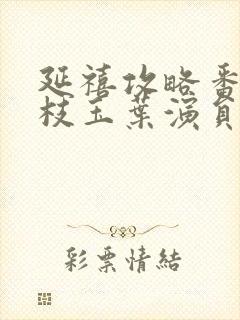 延禧攻略番
枝玉葉演員
彩票情結